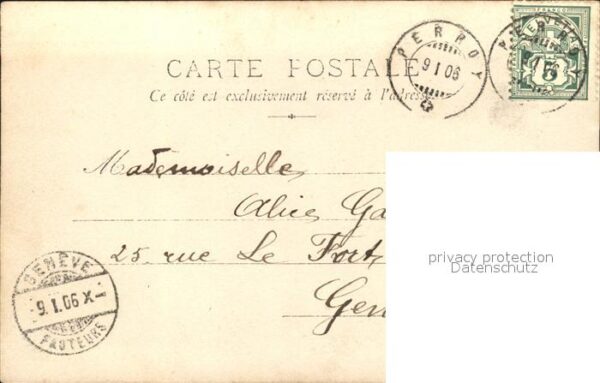 PERROY
9 I 06
PERROY
I 06
FRANCO
5
CARTE POSTALE
Ce côté est exclusivement réservé à l'adresse
Mademoiselle
Alice Ga
25 rue Le Fort,
Gen
GENÈVE
-9.I.06 X-
FACTEURS
privacy protection
Datenschutz